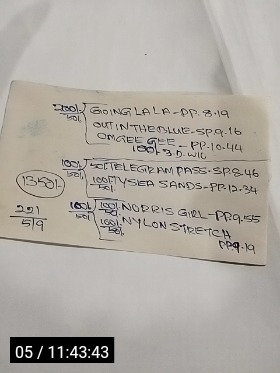 200/- GOING LALA-PP.8.19
50/- OUTINTHEBLUE-SP.9.16
OMGEE GEE-PP-10-44
100/- 3.D.WIG
100/- 50/- TELEGRAM PASS-SP.8.46
50/- 100/- TYSEA SANDS-PP-12-34
50/-
1350/-
100/- 100/- NORRIS GIRL-PP.9.55
50/- 50/-
100/- NYLON STRETCH
50/- PP.9.19
221
5/9
05 / 11:43:43